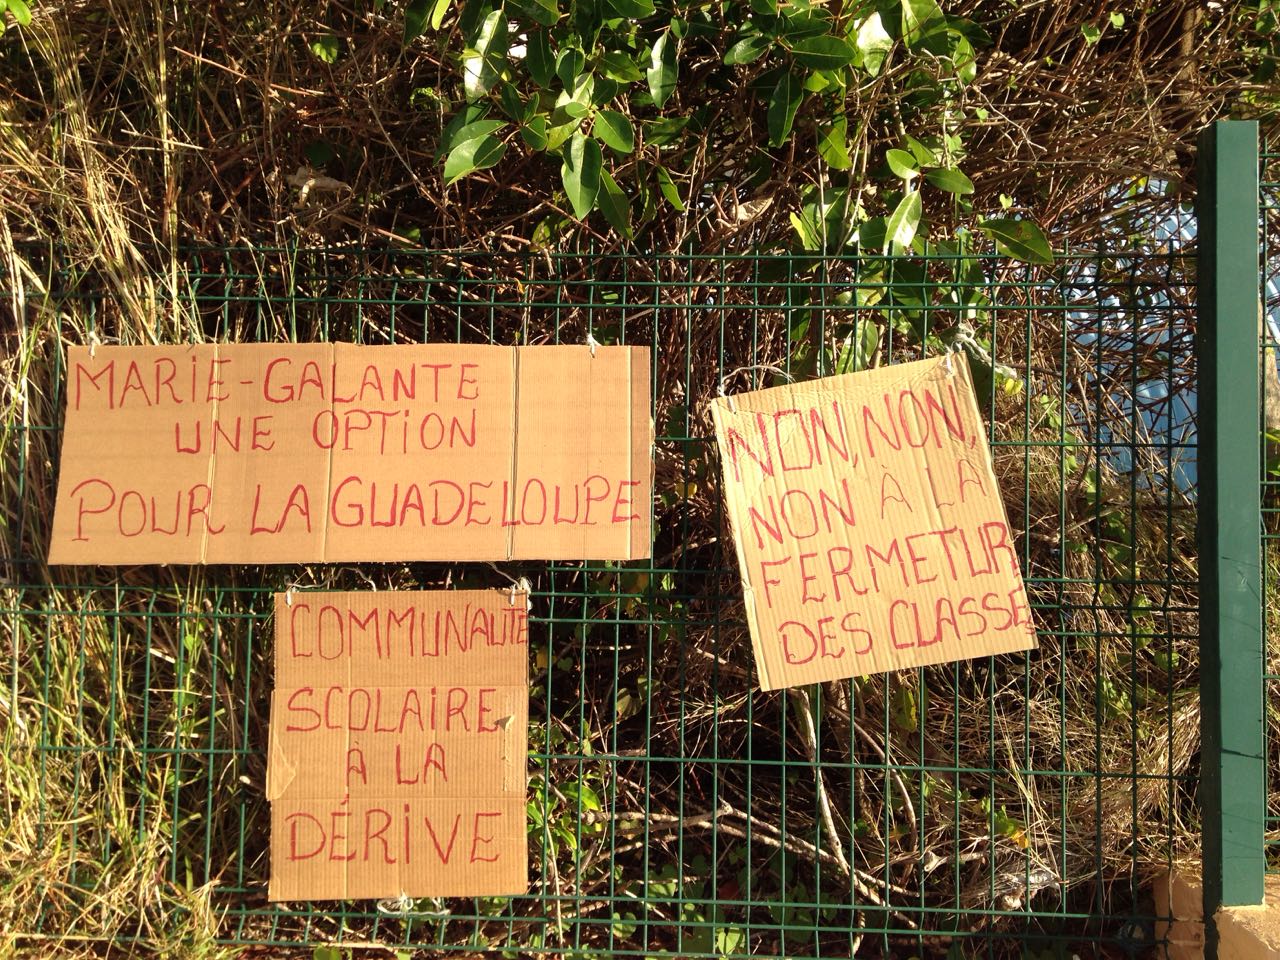 MARIE-GALANTE
UNE OPTION
POUR LA GUADELOUPE
NON, NON,
NON À LA
FERMETUR
DES CLASSES
COMMUNAUTÉ
SCOLAIRE
À LA
DÉRIVE